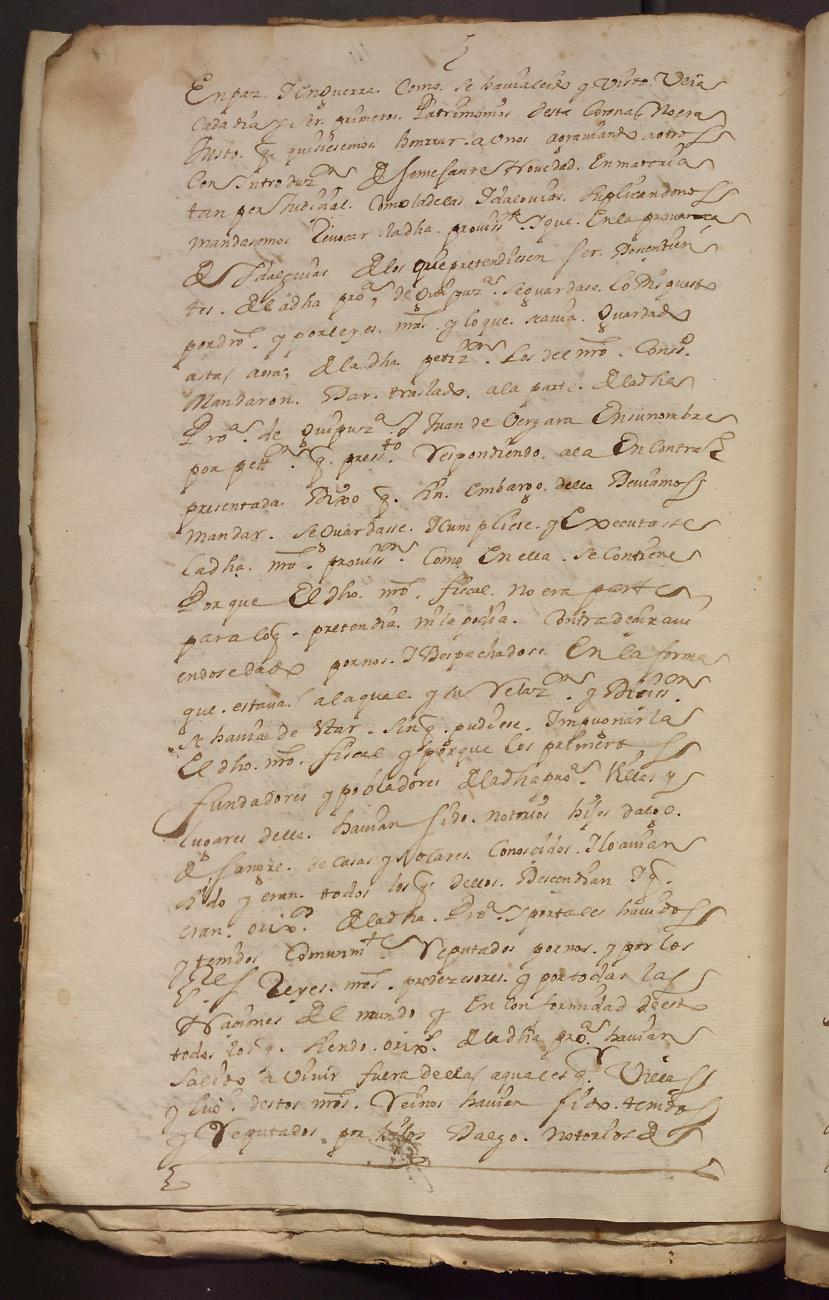 En paz. Y En guerra. Como. se havia leido y Visto. Veia
Cada dia y Ser. primeros. Patrimonios desta Corona No era
Justo. q. quisiesemos honrrar. a unos agraviando a otros
Con Introduz.on de semejante Novedad. En materia
tan perJudicial. Como la de las Ydalguias. suplicandonos
mandasemos Revocar. la dha. proviss.on y que. En la provanza
de Ydalguias de los que pretendiesen ser. Descendien
tes. de la dha pro.a de Guipuz.a se guardase. lo Dispuesto
por dro. y por leyes. nras. y lo que. se avia. Guardado
asta aora; de la dha. petiz.on Los del nro. Consº.
Mandaron. Dar. traslado. a la parte. de la dha
Pro.a de Guipuz.a y Juan de Vergara En su nombre
por pett.on q. press.to Respondiendo. a la En contra
presentada. Dixo q. sin. Embargo. della Deviamos
mandar. se guardasse. Y cumpliese. y Executasse
la dha. nra. proviss.on Como En ella. se Contiene
Porque El dho. nro. fiscal. No era parte
para lo q. pretendia. ni le podia. Contradecir avi
endose dado por nos. Y Despachadose En la forma
que. estava. a la qual. y su Relaz.on y Deciss.on
se havia de Estar. sin q. pudiese. Impugnarla
El dho. nro. fiscal y porque los primeros
fundadores y pobladores de la dha pro.a Villas y
lugares della. havian sido. notorios hijos dalgo.
de sangre. de Casas y Solares. Conoscidos. Y lo avian
sido y eran. todos los q. dellos. Descendian Y q.
eran. orix.s de la dha. Pro.a y por tales havidos
y tenidos Comunm.te Reputados por nos. y por los
Reyes. nros. predezesores. y por todas las
Naciones del mundo y En conformidad desto
todos los q. siendo. orix.s de la dha pro.a havian
Salido a vivir fuera della a qualesq.r Villas
y lug.s destos nros. Reinos havian sido. tenidos
y Reputados por hijos Dalgo. notorios de